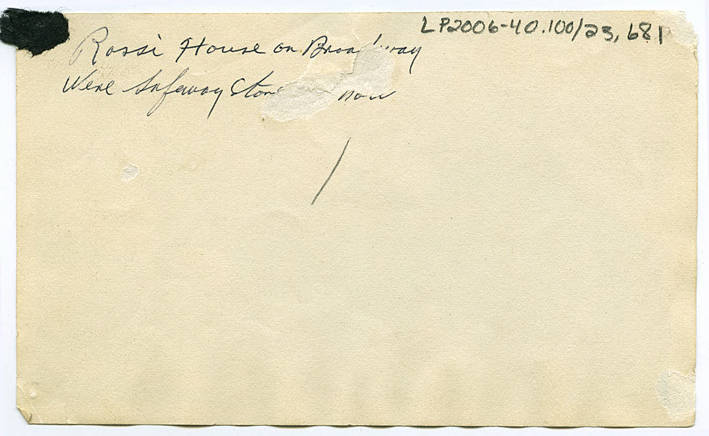 LP2006-40.100/23,681
Rossi House on Broadway
Were Safeway Store now